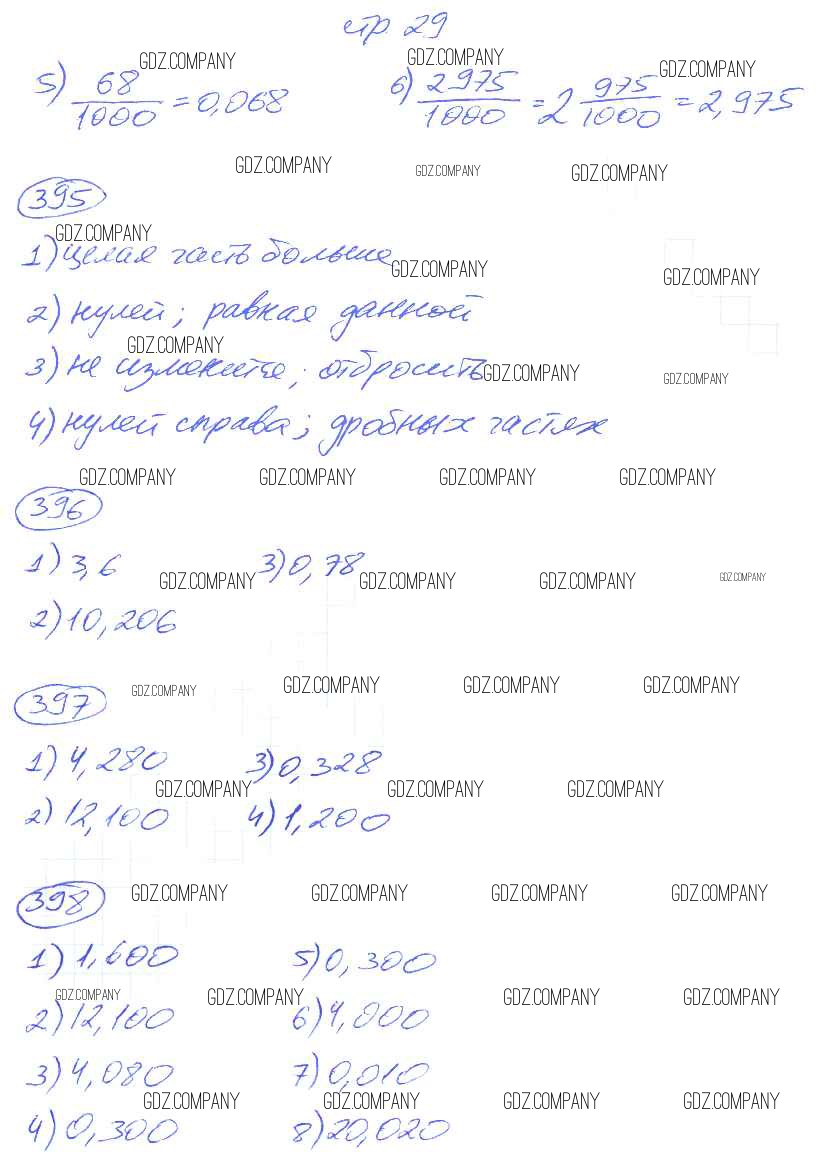 стр. 29
GDZ.COMPANY GDZ.COMPANY GDZ.COMPANY
5) 68/1000 = 0,068 6) 2975/1000 = 2 975/1000 = 2,975
GDZ.COMPANY GDZ.COMPANY GDZ.COMPANY
395
GDZ.COMPANY
1) целая часть больше
GDZ.COMPANY GDZ.COMPANY
2) нулей; равная данной
GDZ.COMPANY
3) не изменится; отбросить
GDZ.COMPANY GDZ.COMPANY
4) нулей справа; дробных частях
GDZ.COMPANY GDZ.COMPANY GDZ.COMPANY GDZ.COMPANY
396
1) 3,6 3) 0,78
GDZ.COMPANY GDZ.COMPANY GDZ.COMPANY GDZ.COMPANY
2) 10,206
GDZ.COMPANY GDZ.COMPANY GDZ.COMPANY GDZ.COMPANY
397
1) 4,280 3) 0,328
GDZ.COMPANY GDZ.COMPANY GDZ.COMPANY
2) 12,100 4) 1,200
398
GDZ.COMPANY GDZ.COMPANY GDZ.COMPANY GDZ.COMPANY
1) 1,600 5) 0,300
GDZ.COMPANY GDZ.COMPANY GDZ.COMPANY GDZ.COMPANY
2) 12,100 6) 4,000
3) 4,080 7) 0,010
GDZ.COMPANY GDZ.COMPANY GDZ.COMPANY GDZ.COMPANY
4) 0,300 8) 20,020